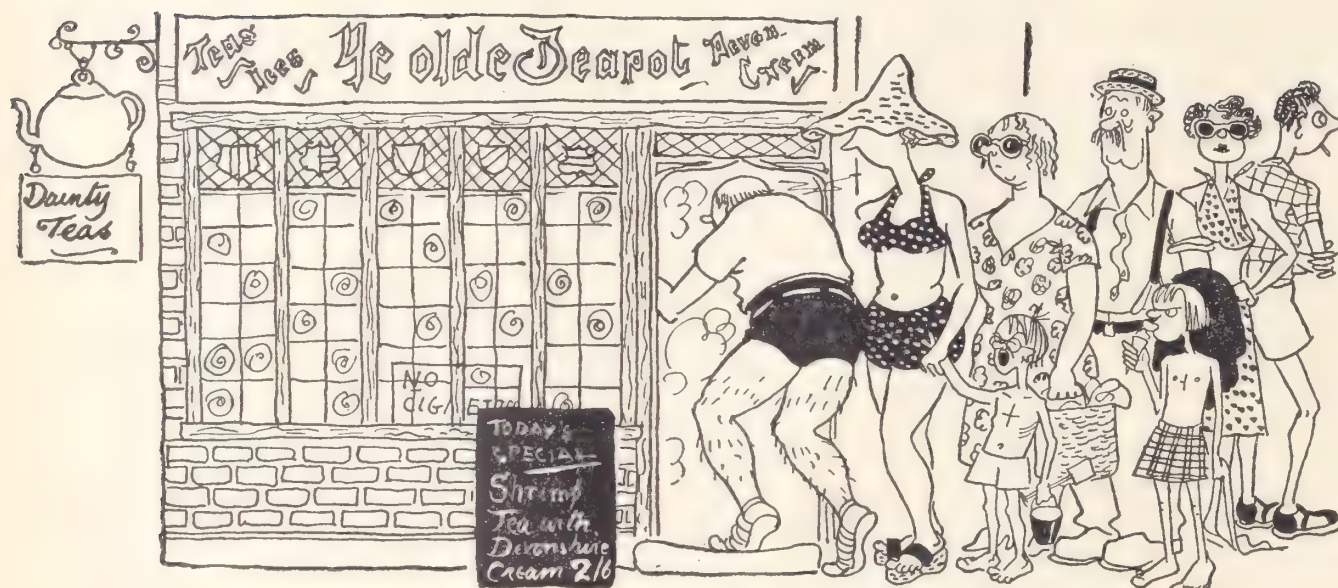 Teas
Ices
Ye olde Teapot
Devon
Cream
Dainty
Teas
NO
TODAY'S
SPECIAL
Shrimp
Tea with
Devonshire
Cream 2/6